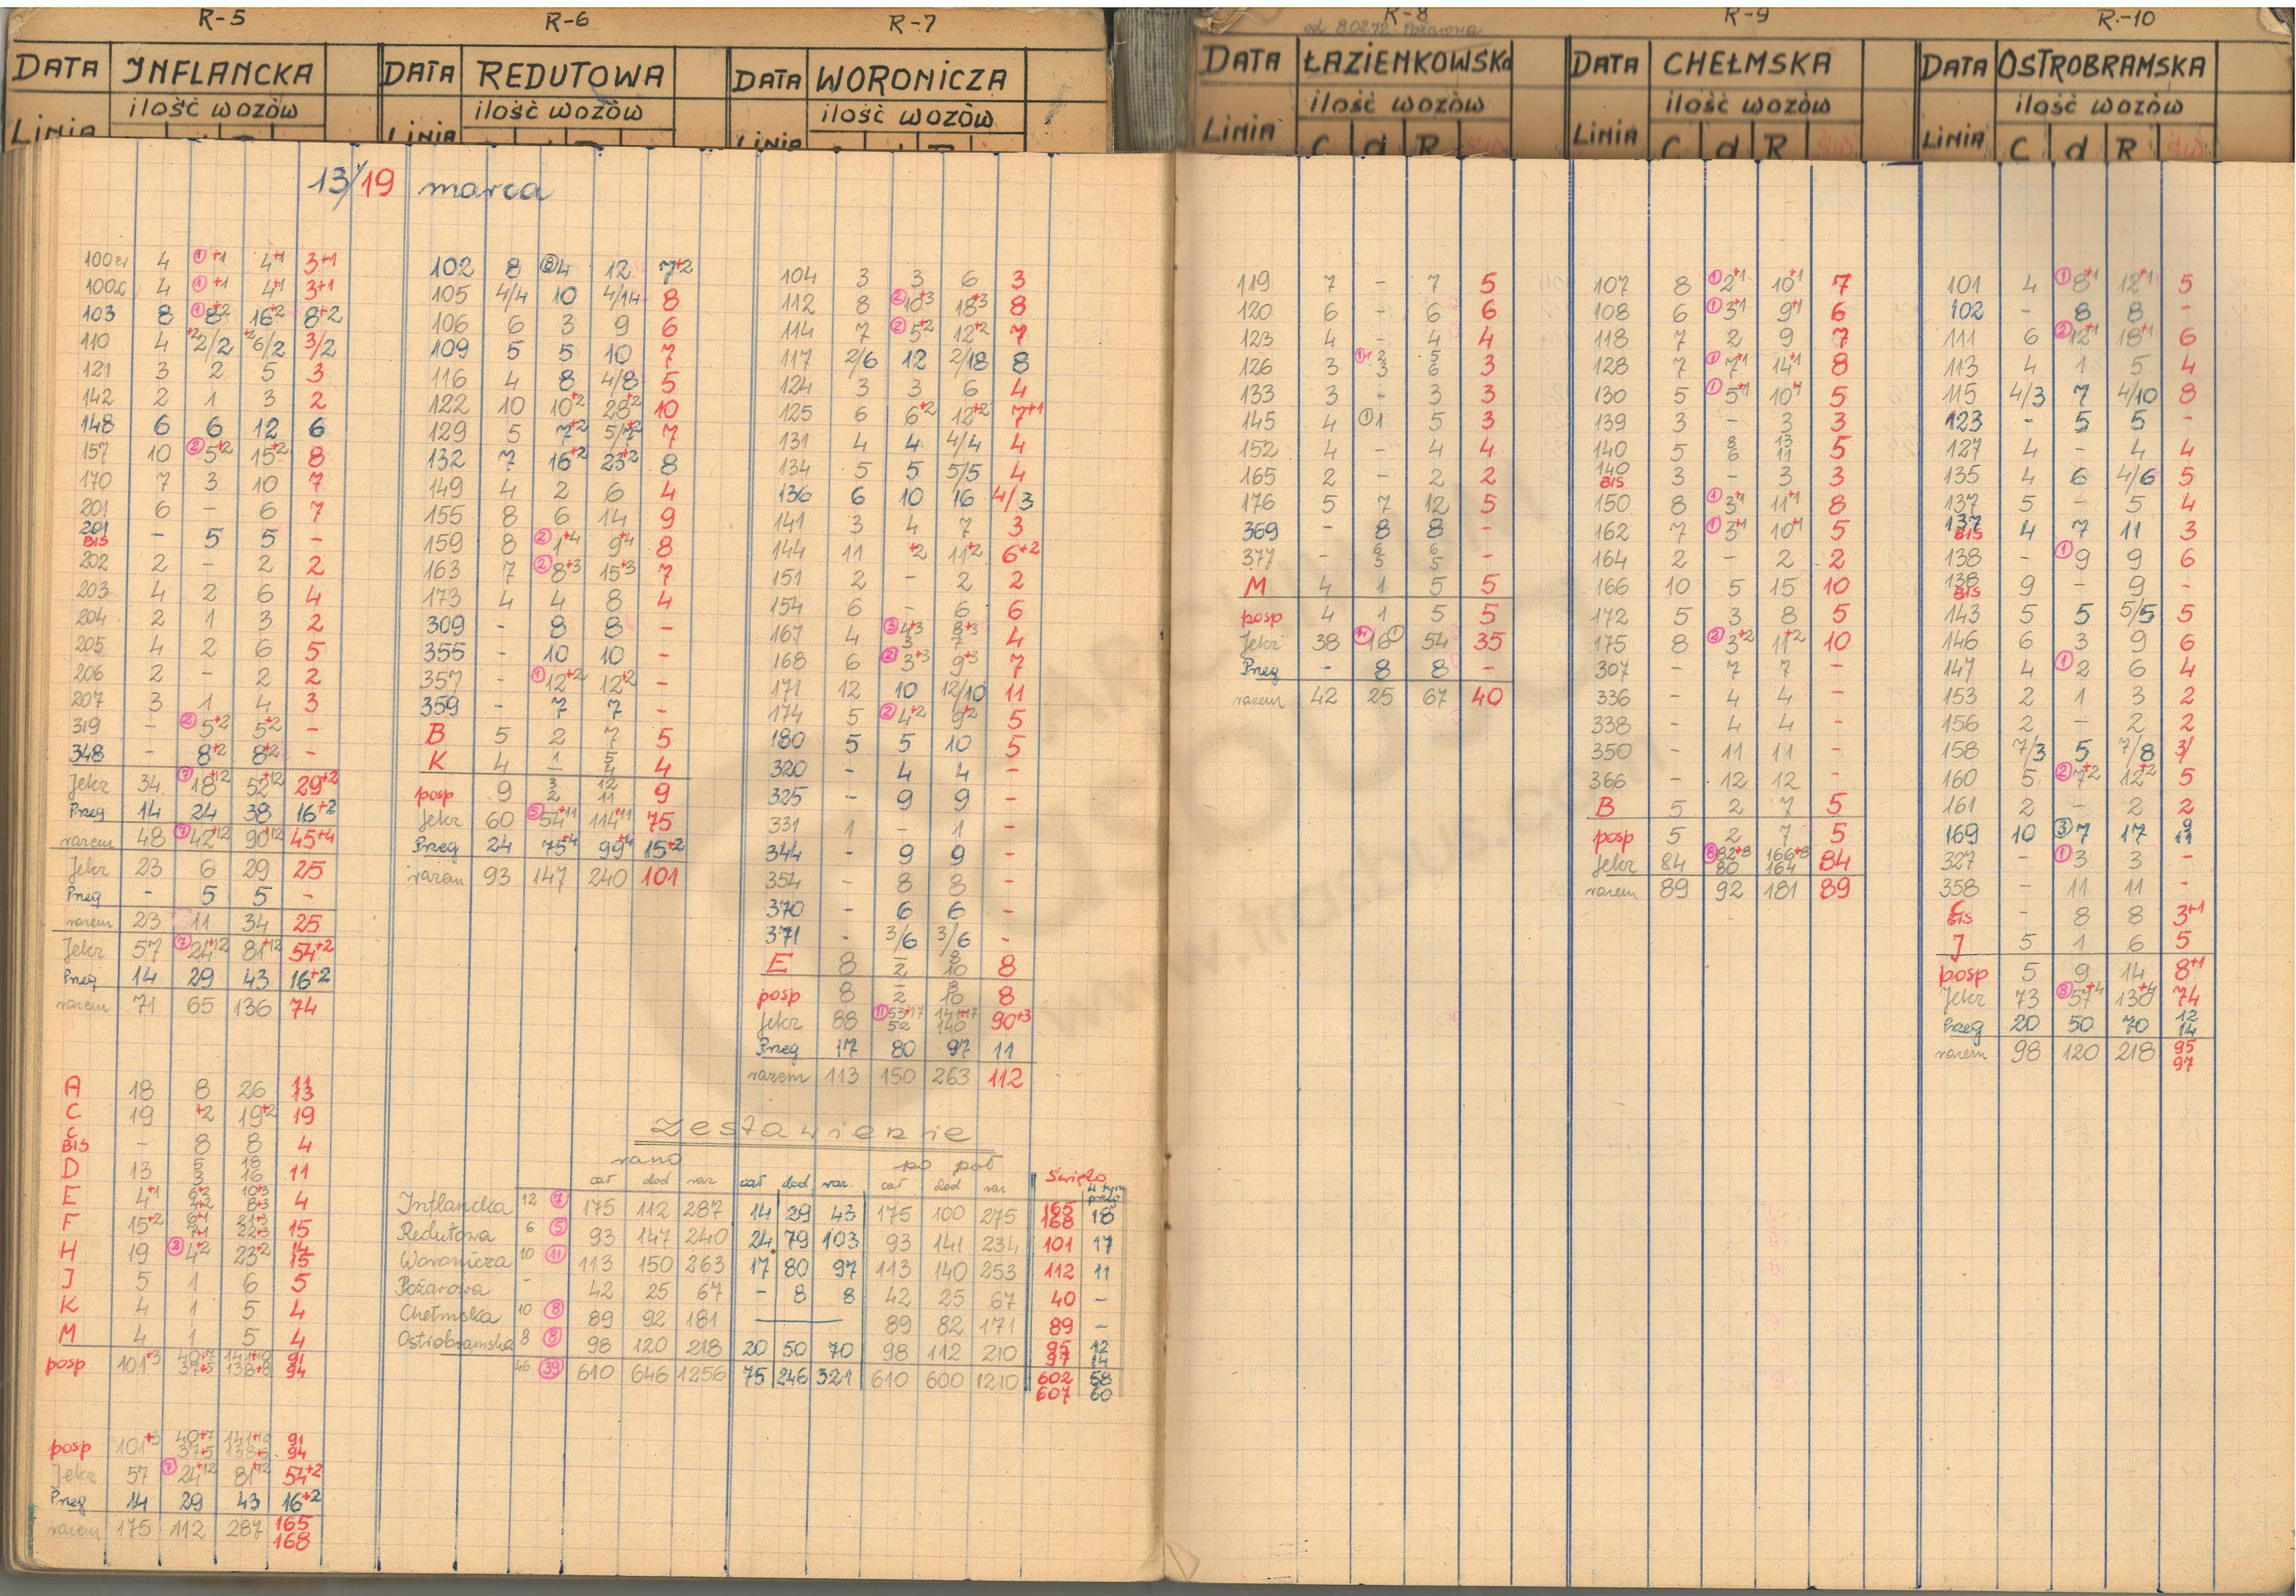 R-5
DATA INFLANCKA
ilość wozów
Linia
13/19 marca
100 4 ① +1 4+1 3+1
100 4 ① +1 4+1 3+1
103 8 ① 8+2 16+2 8+2
110 4 +2 2/2 +2 6/2 3/2
121 3 2 5 3
142 2 1 3 2
148 6 6 12 6
157 10 ② 5+2 15+2 8
170 7 3 10 7
201 6 - 6 7
201 BIS - 5 5 -
202 2 - 2 2
203 4 2 6 4
204 2 1 3 2
205 4 2 6 5
206 2 - 2 2
207 3 1 4 3
319 - ② 5+2 5+2 -
348 - 8+2 8+2 -
Jelcz 34 ⑦ 18+12 52+12 29+2
Przeg 14 24 38 16+2
razem 48 ⑦ 42+12 90+12 45+4
Jelcz 23 6 29 25
Przeg - 5 5 -
razem 23 11 34 25
Jelcz 57 ⑦ 24+12 81+12 54+2
Przeg 14 29 43 16+2
razem 71 65 136 74
A 18 8 26 11 13
C 19 +2 19+2 19
C BIS - 8 8 4
D 13 5 3 18 16 11
E 4+1 6+2 4+2 10+3 8+3 4
F 15+2 6+1 7+1 21+3 22+3 15
H 19 4+2 23+2 14 15
J 5 1 6 5
K 4 1 5 4
M 4 1 5 4
posp 101+3 40+7 37+5 141+10 138+8 91 94
posp 101+3 40+7 37+5 141+10 138+8 91 94
Jelcz 57 ⑦ 24+12 81+12 54+2
Przeg 14 29 43 16+2
razem 175 112 287 165 168
R-6
DATA REDUTOWA
ilość wozów
Linia
102 8 ⑧ 4 12 7+2
105 4/4 10 4/14 8
106 6 3 9 6
109 5 5 10 7
116 4 8 4/8 5
122 10 10+2 28+2 10
129 5 7+2 5/7+2 7
132 7 16+2 23+2 8
149 4 2 6 4
155 8 6 14 9
159 8 ② 1+4 9+4 8
163 7 ② 8+3 15+3 7
173 4 4 8 4
309 - 8 8 -
355 - 10 10 -
357 - ① 12+2 12+2 -
359 - 7 7 -
B 5 2 7 5
K 4 1 - 5 4 4
posp 9 3 2 12 11 9
Jelcz 60 ⑤ 54+11 114+11 75
Przeg 24 75+4 99+4 15+2
razem 93 147 240 101
R-7
DATA WORONICZA
ilość wozów
Linia
104 3 3 6 3
112 8 ② 10+3 18+3 8
114 7 ② 5+2 12+2 7
117 2/6 12 2/18 8
124 3 3 6 4
125 6 6+2 12+2 7+1
131 4 4 4/4 4
134 5 5 5/5 4
136 6 10 16 4/3
141 3 4 7 3
144 11 +2 11+2 6+2
151 2 - 2 2
154 6 - 6 6
167 4 ③ 4+3 3 8+3 7 4
168 6 ② 3+3 9+3 7
171 12 10 12/10 11
174 5 ② 4+2 9+2 5
180 5 5 10 5
320 - 4 4 -
325 - 9 9 -
331 1 - 1 -
344 - 9 9 -
354 - 8 8 -
370 - 6 6 -
371 - 3/6 3/6 -
E 8 - 2 8 10 8
posp 8 - 2 8 10 8
Jelcz 88 ⑪ 53+17 52 141+17 140 90+3
Przeg 17 80 97 11
razem 113 150 263 112
Zestawienie
rano po poł Święto
cał dod raz cał dod raz. cał dod raz w tym przeg
Inflancka 12 ⑦ 175 112 287 14 29 43 175 100 275 165 168 18
Redutowa 6 ⑤ 93 147 240 24 79 103 93 141 234 101 17
Woronicza 10 ⑪ 113 150 263 17 80 97 113 140 253 112 11
Pożarowa - 42 25 67 - 8 8 42 25 67 40 -
Chełmska 10 ⑧ 89 92 181 — 89 82 171 89 -
Ostrobramska 8 ⑧ 98 120 218 20 50 70 98 112 210 95 97 12 14
46 ㊴ 610 646 1256 75 246 321 610 600 1210 602 607 58 60
R-8
od 8.02.72 Pożarowa
DATA ŁAZIENKOWSKA
ilość wozów
Linia C d R
119 7 - 7 5
120 6 - 6 6
123 4 - 4 4
126 3 2 3 5 6 3
133 3 - 3 3
145 4 ① 1 5 3
152 4 - 4 4
165 2 - 2 2
176 5 7 12 5
369 - 8 8 -
377 - 6 5 6 5 -
M 4 1 5 5
posp 4 1 5 5
Jelcz 38 16 54 35
Przeg - 8 8 -
razem 42 25 67 40
R-9
DATA CHEŁMSKA
ilość wozów
Linia C d R
107 8 ① 2+1 10+1 7
108 6 ① 3+1 9+1 6
118 7 2 9 7
128 7 ① 7+1 14+1 8
130 5 ① 5+1 10+1 5
139 3 - 3 3
140 5 8 6 13 11 5
140 BIS 3 - 3 3
150 8 ① 3+1 11+1 8
162 7 ① 3+1 10+1 5
164 2 - 2 2
166 10 5 15 10
172 5 3 8 5
175 8 ② 3+2 11+2 10
307 - 7 7 -
336 - 4 4 -
338 - 4 4 -
350 - 11 11 -
366 - 12 12 -
B 5 2 7 5
posp 5 2 7 5
Jelcz 84 ⑧ 82+8 80 166+8 164 84
razem 89 92 181 89
R-10
DATA OSTROBRAMSKA
ilość wozów
Linia C d R
101 4 ① 8+1 12+1 5
102 - 8 8 -
111 6 ② 12+1 18+1 6
113 4 1 5 4
115 4/3 7 4/10 8
123 - 5 5 -
127 4 - 4 4
135 4 6 4/6 5
137 5 - 5 4
137 BIS 4 7 11 3
138 - ① 9 9 6
138 BIS 9 - 9 -
143 5 5 5/5 5
146 6 3 9 6
147 4 ① 2 6 4
153 2 1 3 2
156 2 - 2 2
158 7/3 5 7/8 3/
160 5 ② 7+2 12+2 5
161 2 - 2 2
169 10 ③ 7 17 9 11
327 - ① 3 3 -
358 - 11 11 -
C BIS - 8 8 3+1
J 5 1 6 5
posp 5 9 14 8+1
Jelcz 73 ⑧ 57+4 130+4 74
Przeg 20 50 70 12 14
razem 98 120 218 95 97